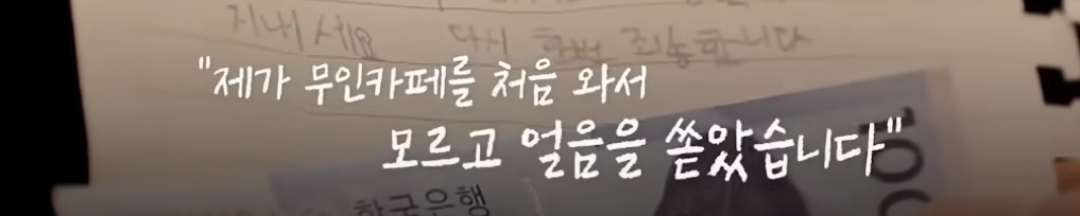 지내세요 다시 한번 죄송합니다
"제가 무인카페를 처음 와서
모르고 얼음을 쏟았습니다"
한국은행